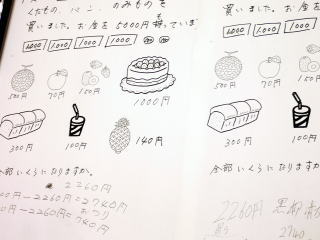 くだもの、パン、のみものを
買いました。お金を5000円持っていま
1000 1000 1000 1000
500円 70円 150円 1000円
300円 100円 140円
全部いくらになりますか。
2260円
00円-2260円=2740円
おつり
0円-2260円=2740円
買いました。お金を
1000 1000 1000
500円 70円
300円 100
全部いくらになりますか
2260円
2740